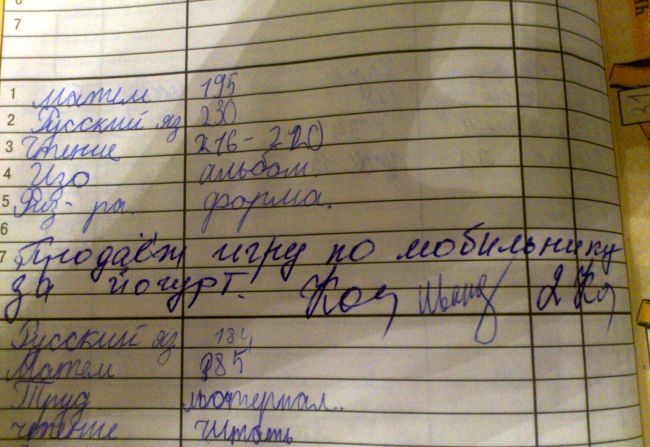 6
7
1 Матем 195
2 Русский яз 230
3 Чтение 216-220
4 Изо альбом.
5 Физ-ра. форма.
6
7 Продаёж игру по мобильнику
за йогурт.
Русский яз 184
Матем 985
Труд материал..
чтение читать